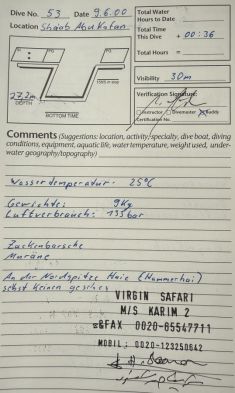 Dive No. 53 Date 9.6.00
Location Shaab Abu Kafan
Total Water
Hours to Date
Total Time
This Dive + 00:36
Total Hours =
PG
PG
27,2m
DEPTH
BOTTOM TIME
Visibility 30m
Verification Signature:
Instructor Divemaster Buddy
Certification No.
Comments (Suggestions: location, activity, specialty, dive boat, diving
conditions, equipment, aquatic life, water temperature, weight used, under-
water geography/topography)
Wassertemperatur: 25°C
Gewichte: 9Kg
Luftverbrauch: 135bar
Zackenbarsche
Muräne
An der Nordspitze Haie (Hammerhai)
selbst keinen gesehen
VIRGIN SAFARI
M/S KARIM 2
&FAX 0020-65547711
MOBIL: 0020-123250642